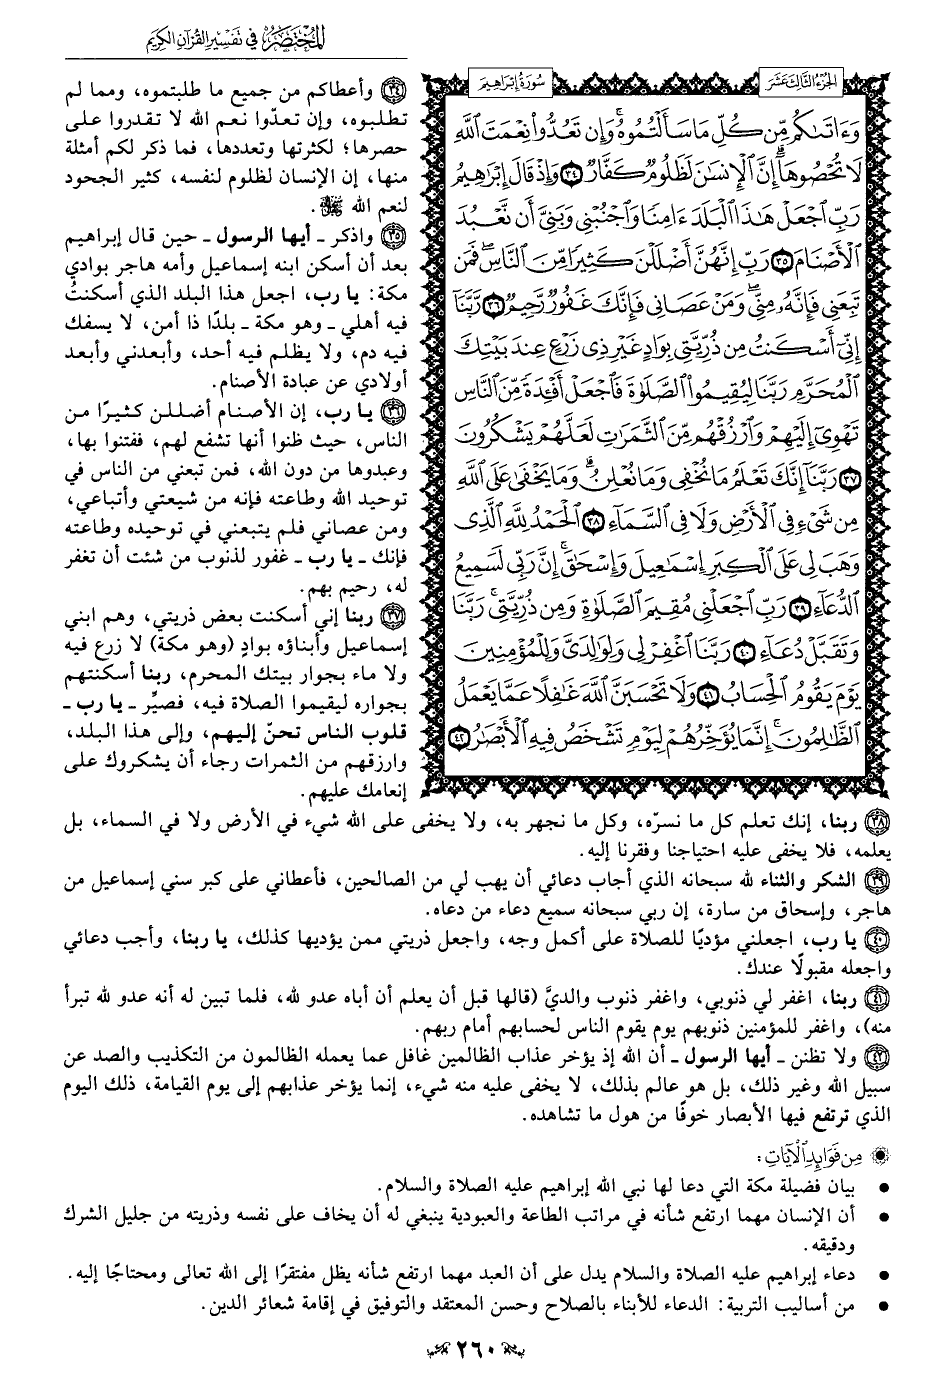 المختصر في تفسير القرآن الكريم
الجزء الثالث عشر
سورة إبراهيم
وَءَاتَىٰكُم مِّن كُلِّ مَا سَأَلْتُمُوهُۚ وَإِن تَعُدُّوا۟ نِعْمَتَ ٱللَّهِ
لَا تُحْصُوهَآۗ إِنَّ ٱلْإِنسَـٰنَ لَظَلُومٌ كَفَّارٌ ٣٤ وَإِذْ قَالَ إِبْرَٰهِيمُ
رَبِّ ٱجْعَلْ هَـٰذَا ٱلْبَلَدَ ءَامِنًا وَٱجْنُبْنِى وَبَنِىَّ أَن نَّعْبُدَ
ٱلْأَصْنَامَ ٣٥ رَبِّ إِنَّهُنَّ أَضْلَلْنَ كَثِيرًا مِّنَ ٱلنَّاسِۖ فَمَن
تَبِعَنِى فَإِنَّهُۥ مِنِّىۖ وَمَنْ عَصَانِى فَإِنَّكَ غَفُورٌ رَّحِيمٌ ٣٦ رَّبَّنَآ
إِنِّىٓ أَسْكَنتُ مِن ذُرِّيَّتِى بِوَادٍ غَيْرِ ذِى زَرْعٍ عِندَ بَيْتِكَ
ٱلْمُحَرَّمِ رَبَّنَا لِيُقِيمُوا۟ ٱلصَّلَوٰةَ فَٱجْعَلْ أَفْـِٔدَةً مِّنَ ٱلنَّاسِ
تَهْوِىٓ إِلَيْهِمْ وَٱرْزُقْهُم مِّنَ ٱلثَّمَرَٰتِ لَعَلَّهُمْ يَشْكُرُونَ
٣٧ رَبَّنَآ إِنَّكَ تَعْلَمُ مَا نُخْفِى وَمَا نُعْلِنُۗ وَمَا يَخْفَىٰ عَلَى ٱللَّهِ
مِن شَىْءٍ فِى ٱلْأَرْضِ وَلَا فِى ٱلسَّمَآءِ ٣٨ ٱلْحَمْدُ لِلَّهِ ٱلَّذِى
وَهَبَ لِى عَلَى ٱلْكِبَرِ إِسْمَـٰعِيلَ وَإِسْحَـٰقَۚ إِنَّ رَبِّى لَسَمِيعُ
ٱلدُّعَآءِ ٣٩ رَبِّ ٱجْعَلْنِى مُقِيمَ ٱلصَّلَوٰةِ وَمِن ذُرِّيَّتِىۚ رَبَّنَا
وَتَقَبَّلْ دُعَآءِ ٤٠ رَبَّنَا ٱغْفِرْ لِى وَلِوَٰلِدَىَّ وَلِلْمُؤْمِنِينَ
يَوْمَ يَقُومُ ٱلْحِسَابُ ٤١ وَلَا تَحْسَبَنَّ ٱللَّهَ غَـٰفِلًا عَمَّا يَعْمَلُ
ٱلظَّـٰلِمُونَۚ إِنَّمَا يُؤَخِّرُهُمْ لِيَوْمٍ تَشْخَصُ فِيهِ ٱلْأَبْصَـٰرُ ٤٢
٣٤ وأعطاكم من جميع ما طلبتموه، ومما لم
تطلبوه، وإن تعدّوا نعم الله لا تقدروا على
حصرها؛ لكثرتها وتعددها، فما ذكر لكم أمثلة
منها، إن الإنسان لظلوم لنفسه، كثير الجحود
لنعم الله ﷻ.
٣٥ واذكر ـ أيها الرسول ـ حين قال إبراهيم
بعد أن أسكن ابنه إسماعيل وأمه هاجر بوادي
مكة: يا رب، اجعل هذا البلد الذي أسكنتُ
فيه أهلي ـ وهو مكة ـ بلدًا ذا أمن، لا يسفك
فيه دم، ولا يظلم فيه أحد، وأبعدني وأبعد
أولادي عن عبادة الأصنام.
٣٦ يا رب، إن الأصنام أضللن كثيرًا من
الناس، حيث ظنوا أنها تشفع لهم، ففتنوا بها،
وعبدوها من دون الله، فمن تبعني من الناس في
توحيد الله وطاعته فإنه من شيعتي وأتباعي،
ومن عصاني فلم يتبعني في توحيده وطاعته
فإنك ـ يا رب ـ غفور لذنوب من شئت أن تغفر
له، رحيم بهم.
٣٧ ربنا إني أسكنت بعض ذريتي، وهم ابني
إسماعيل وأبناؤه بوادٍ (وهو مكة) لا زرع فيه
ولا ماء بجوار بيتك المحرم، ربنا أسكنتهم
بجواره ليقيموا الصلاة فيه، فصيِّر ـ يا رب ـ
قلوب الناس تحنّ إليهم، وإلى هذا البلد،
وارزقهم من الثمرات رجاء أن يشكروك على
إنعامك عليهم.
٣٨ ربنا، إنك تعلم كل ما نسرّه، وكل ما نجهر به، ولا يخفى على الله شيء في الأرض ولا في السماء، بل
يعلمه، فلا يخفى عليه احتياجنا وفقرنا إليه.
٣٩ الشكر والثناء لله سبحانه الذي أجاب دعائي أن يهب لي من الصالحين، فأعطاني على كبر سني إسماعيل من
هاجر، وإسحاق من سارة، إن ربي سبحانه سميع دعاء من دعاه.
٤٠ يا رب، اجعلني مؤديًا للصلاة على أكمل وجه، واجعل ذريتي ممن يؤديها كذلك، يا ربنا، وأجب دعائي
واجعله مقبولًا عندك.
٤١ ربنا، اغفر لي ذنوبي، واغفر ذنوب والديَّ (قالها قبل أن يعلم أن أباه عدو لله، فلما تبين له أنه عدو لله تبرأ
منه)، واغفر للمؤمنين ذنوبهم يوم يقوم الناس لحسابهم أمام ربهم.
٤٢ ولا تظنن ـ أيها الرسول ـ أن الله إذ يؤخر عذاب الظالمين غافل عما يعمله الظالمون من التكذيب والصد عن
سبيل الله وغير ذلك، بل هو عالم بذلك، لا يخفى عليه منه شيء، إنما يؤخر عذابهم إلى يوم القيامة، ذلك اليوم
الذي ترتفع فيها الأبصار خوفًا من هول ما تشاهده.
من فوائد الآيات:
• بيان فضيلة مكة التي دعا لها نبي الله إبراهيم عليه الصلاة والسلام.
• أن الإنسان مهما ارتفع شأنه في مراتب الطاعة والعبودية ينبغي له أن يخاف على نفسه وذريته من جليل الشرك
ودقيقه.
• دعاء إبراهيم عليه الصلاة والسلام يدل على أن العبد مهما ارتفع شأنه يظل مفتقرًا إلى الله تعالى ومحتاجًا إليه.
• من أساليب التربية: الدعاء للأبناء بالصلاح وحسن المعتقد والتوفيق في إقامة شعائر الدين.
٢٦٠